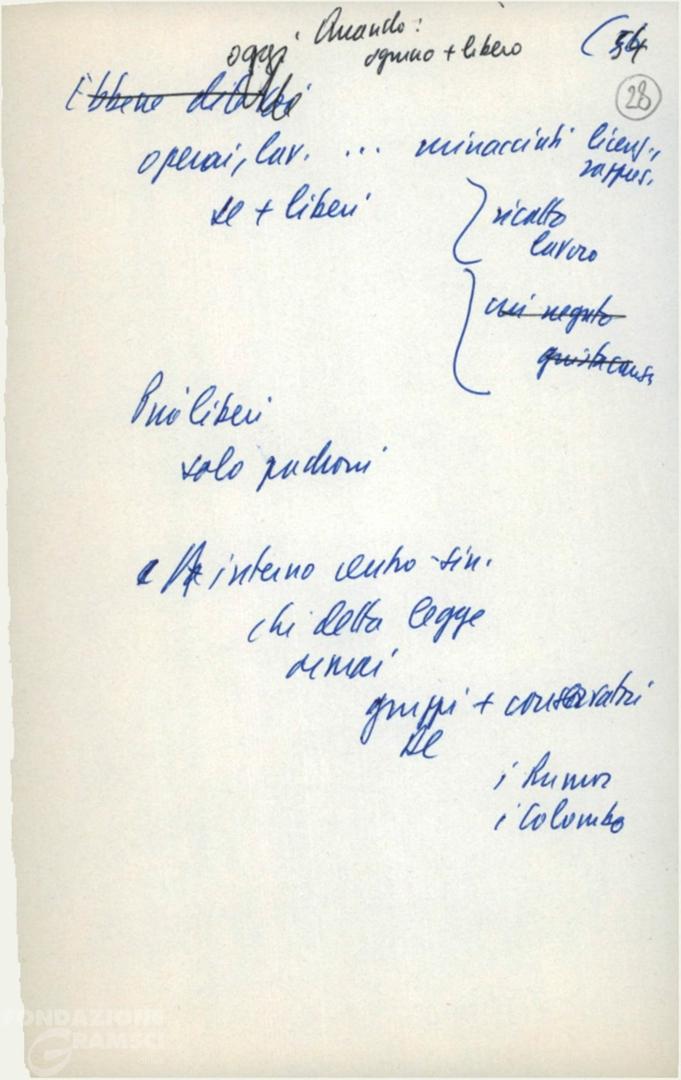 oggi Quando:
ognuno + libero
(54
28
Ebbene
operai, lav. ... minacciati licenz.,
rappres.
se + liberi
ricatto
lavoro
negato
giusta causa
Più liberi
solo padroni
interno centro-sin.
chi detta legge
ormai
gruppi + conservatori
DC
i Rumor
i Colombo
FONDAZIONE
GRAMSCI